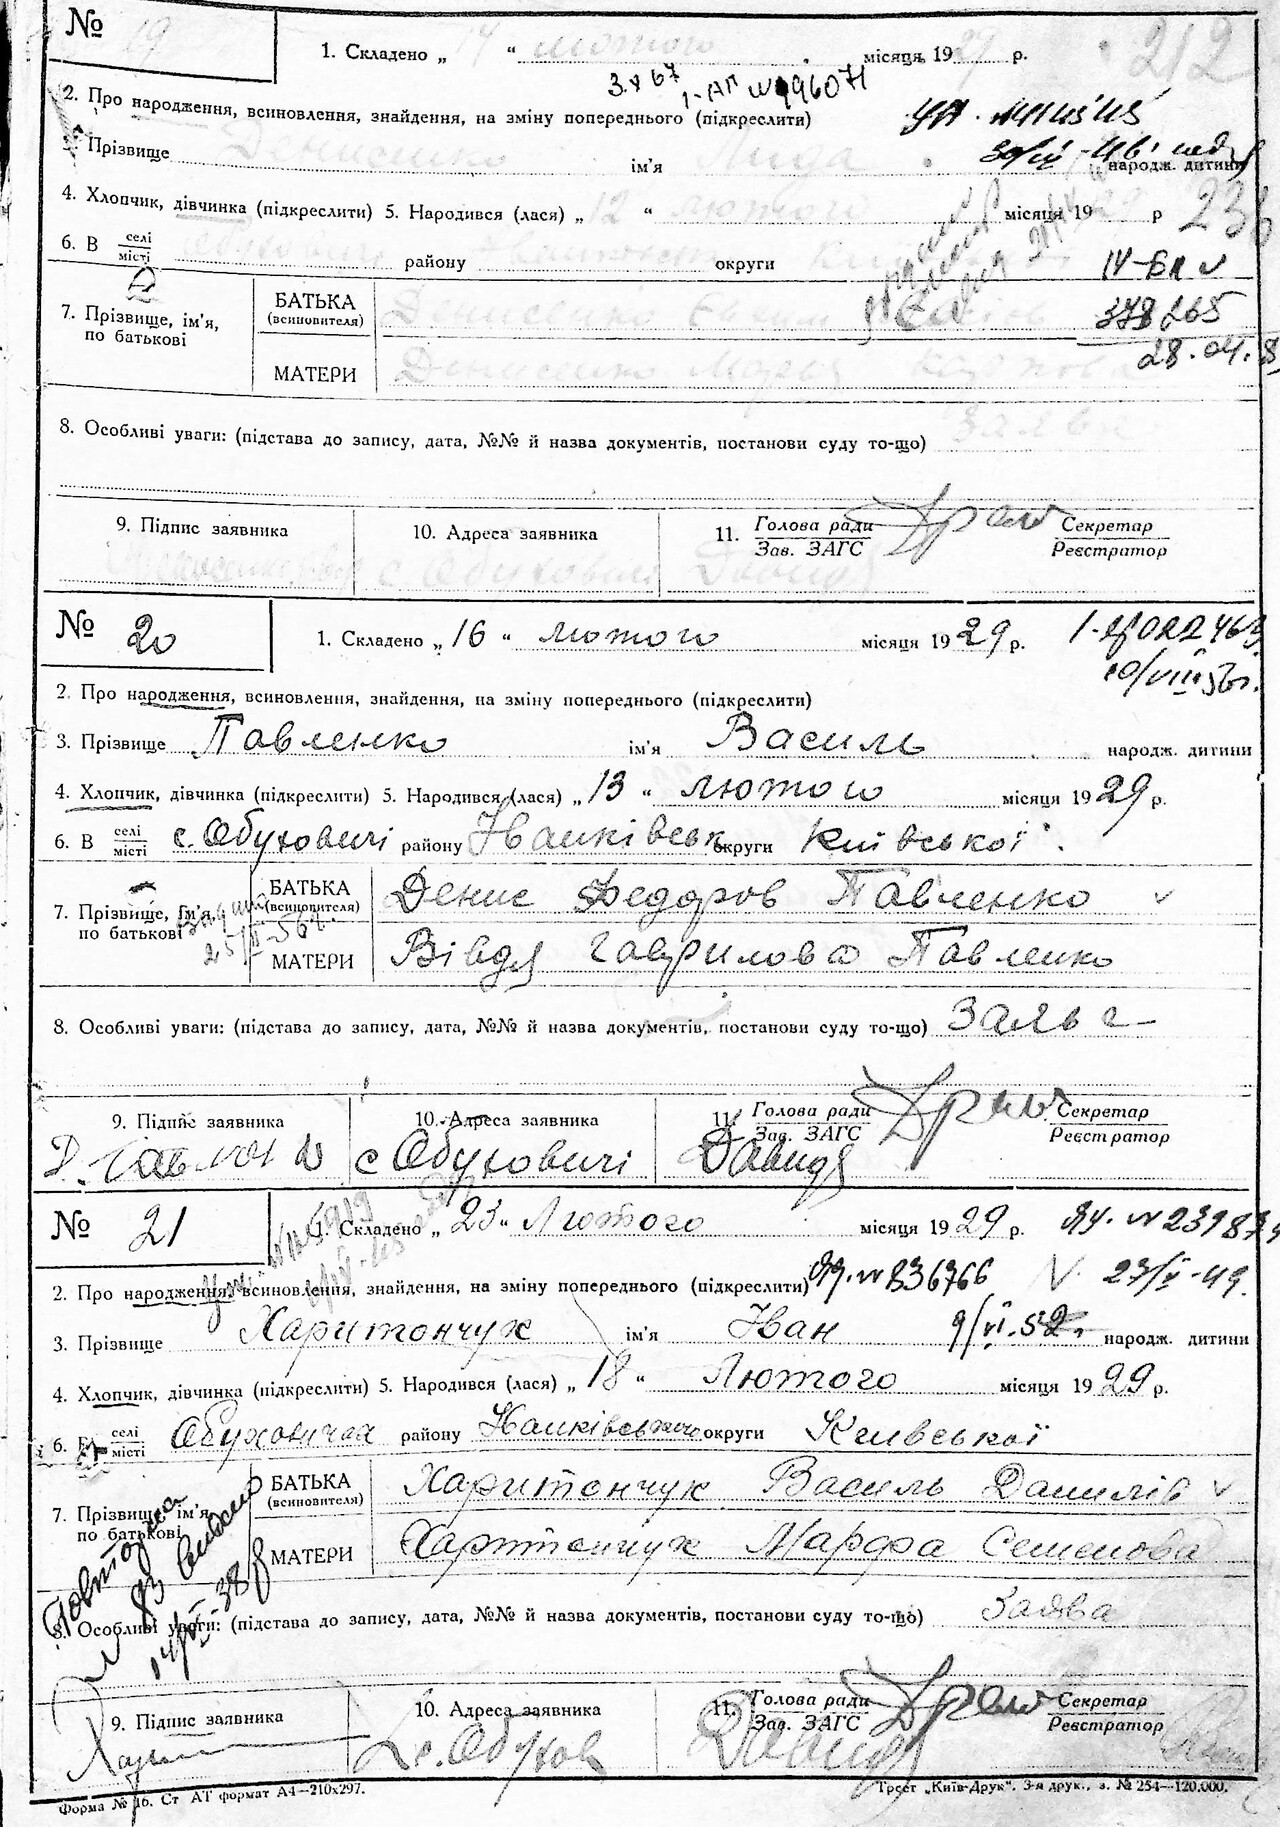 № 19
1. Складено „ 14 “ лютого місяця 1929 р. 212
3.X 67 1-АП №496071
2. Про народження, всиновлення, знайдення, на зміну попереднього (підкреслити)
3. Прізвище Денисенко ім'я Лида народж. дитини
4. Хлопчик, дівчинка (підкреслити) 5. Народився (лася) „ 12 “ лютого місяця 1929 р
6. В селі/місті Обуховичі району Іванківськ округи
IV-БК
378265
28.04.8
7. Прізвище, ім'я, по батькові
БАТЬКА (всиновителя) Денисенко Евсим
МАТЕРИ Денисенко Мария Карпова
8. Особливі уваги: (підстава до запису, дата, №№ й назва документів, постанови суду то-що) Заява
9. Підпис заявника
10. Адреса заявника с. Обуховичі
11. Голова ради/Зав. ЗАГС Секретар/Реєстратор
Давидя
№ 20
1. Складено „ 16 “ лютого місяця 1929 р.
2. Про народження, всиновлення, знайдення, на зміну попереднього (підкреслити)
3. Прізвище Павленко ім'я Василь народж. дитини
4. Хлопчик, дівчинка (підкреслити) 5. Народився (лася) „ 13 “ лютого місяця 1929 р.
6. В селі/місті с. Обуховичі району Іванківськ округи Київської.
7. Прізвище, ім'я, по батькові
БАТЬКА (всиновителя) Денис Федоров Павленко
МАТЕРИ Вівдя Гаврилова Павленко
8. Особливі уваги: (підстава до запису, дата, №№ й назва документів, постанови суду то-що) Заява
9. Підпис заявника
10. Адреса заявника
11. Голова ради/Зав. ЗАГС Секретар/Реєстратор
Д. Павленко с Обуховичі Давидя
№ 21
1. Складено „ 23 “ Лютого місяця 1929 р. ЯЧ. №239873
2. Про народження, всиновлення, знайдення, на зміну попереднього (підкреслити) №836766 23/V-49.
3. Прізвище Харитончук ім'я Іван 9/VI.52 народж. дитини
4. Хлопчик, дівчинка (підкреслити) 5. Народився (лася) „ 18 “ Лютого місяця 1929 р.
6. В селі/місті Обуховичах району Іванківського округи Київської
7. Прізвище, ім'я, по батькові
БАТЬКА (всиновителя) Харитончук Василь Данилів
МАТЕРИ Харитончук Марфа Семенова
8. Особливі уваги: (підстава до запису, дата, №№ й назва документів, постанови суду то-що) Заява
9. Підпис заявника
10. Адреса заявника
11. Голова ради/Зав. ЗАГС Секретар/Реєстратор
с. Обухов Давидя
Форма № 16. Ст АТ формат А4—210x297.
Трест „Київ-Друк". 3-я друк., з. № 254—120.000.